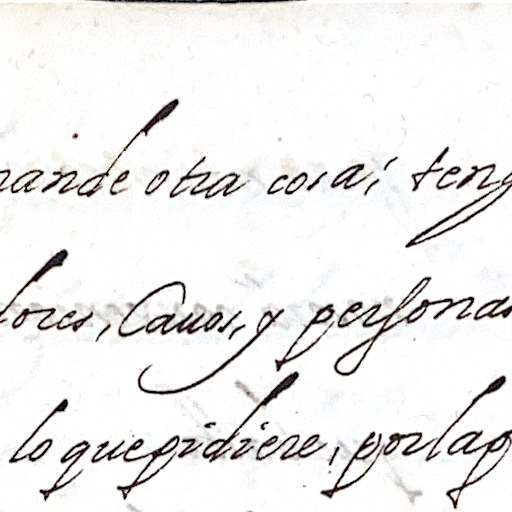 mande otra cosa; teng
dores, Cauos, y personas
lo que pidiere, por la p